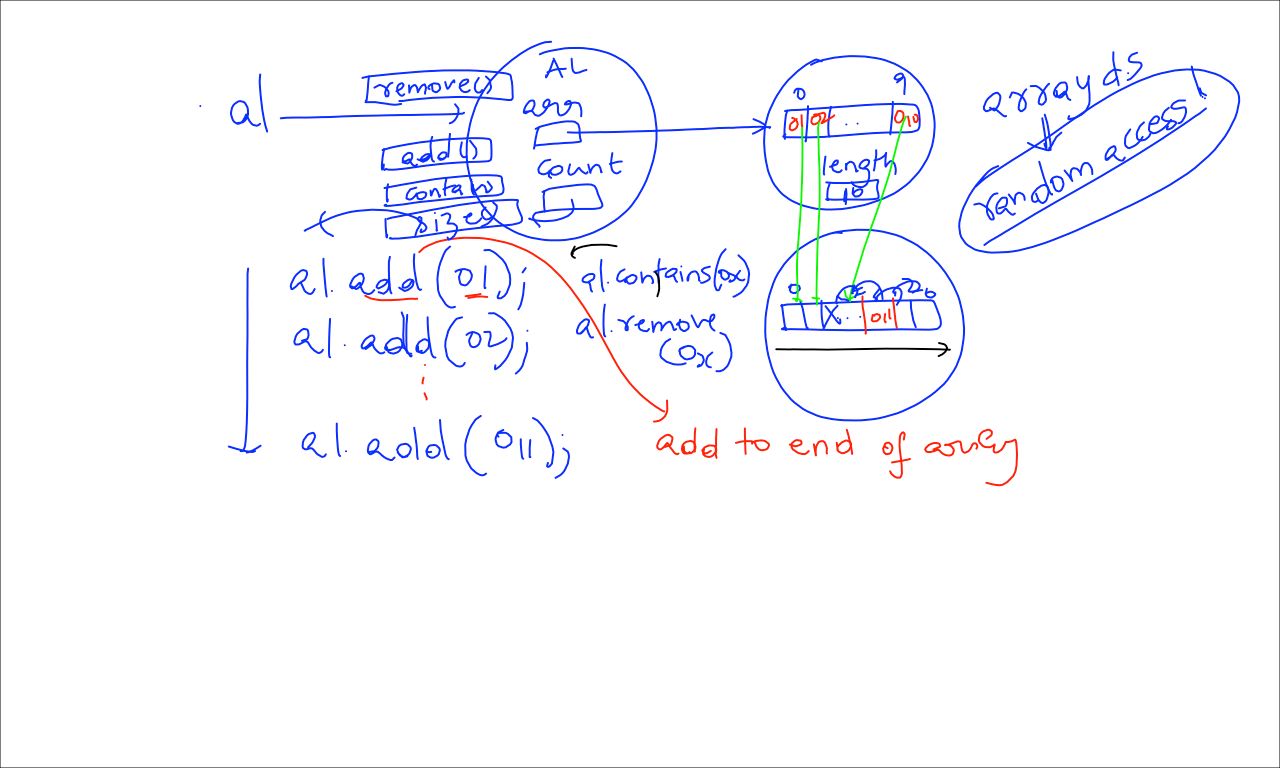 al
remove()
add()
contains
size()
AL
arr
count
0 9
01 02 .. 010
length
10
array d.s
random access
al.add(01);
al.add(02);
al.add(011);
al.contains(ox)
al.remove
(ox)
0
X .. 011
add to end of array